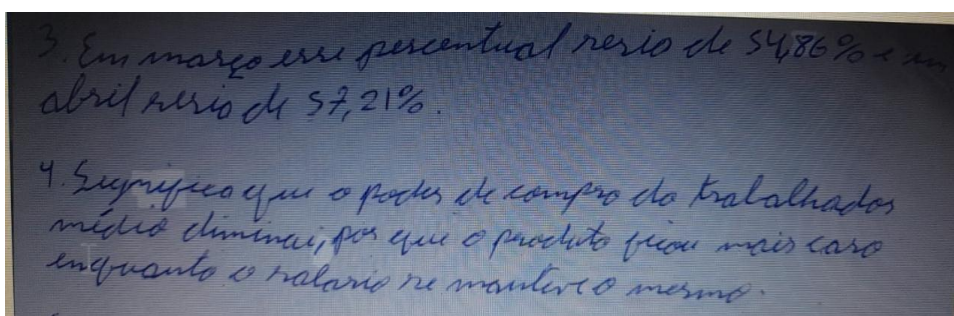 3. Em março esse percentual seria de 54,86% e em
abril seria de 57,21%.
4. Significa que o poder de compra do trabalhador
médio diminui, por que o produto ficou mais caro
enquanto o salario se manteve o mesmo.